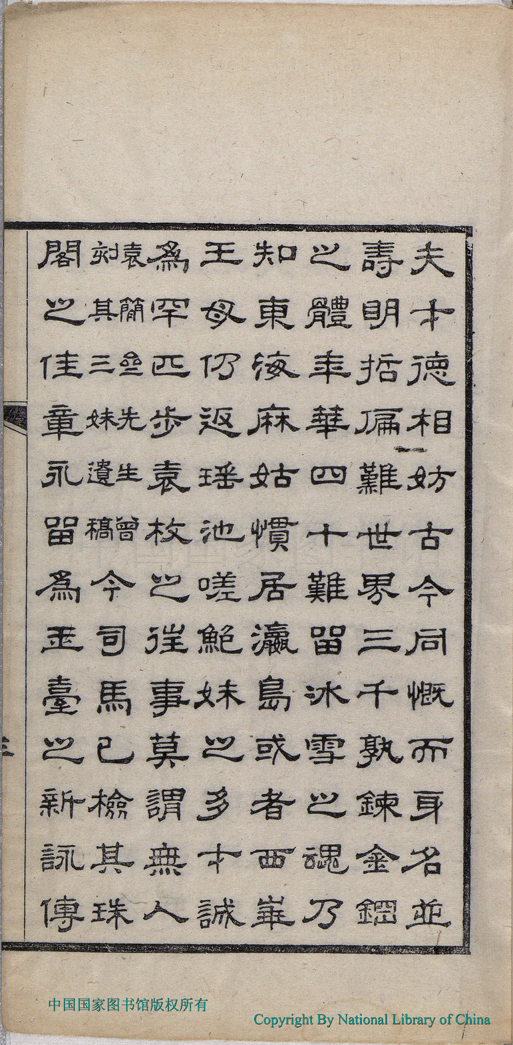 夫才德相妨古今同慨而身名並
壽明哲偏難世界三千孰鍊金鋼
之體年華四十難留冰雪之魂乃
知東海麻姑慣居瀛島或者西崋
王母仍返瑤池嗟鮑妹之多才誠
爲罕匹步袁枚之往事莫謂無人
袁簡齋先生曾
刻其三妹遺稿
今司馬已檢其珠
閣之佳章永留爲玉臺之新詠傳
中国国家图书馆版权所有
Copyright By National Library of China